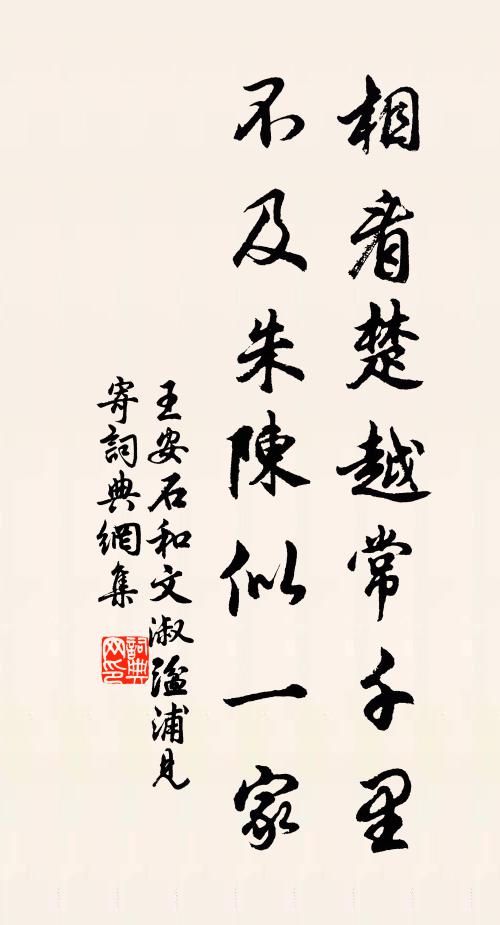 相看楚越常千里
不及朱陳似一家
王安石和文淑湓浦見
寄詞典網集
詞典
網印